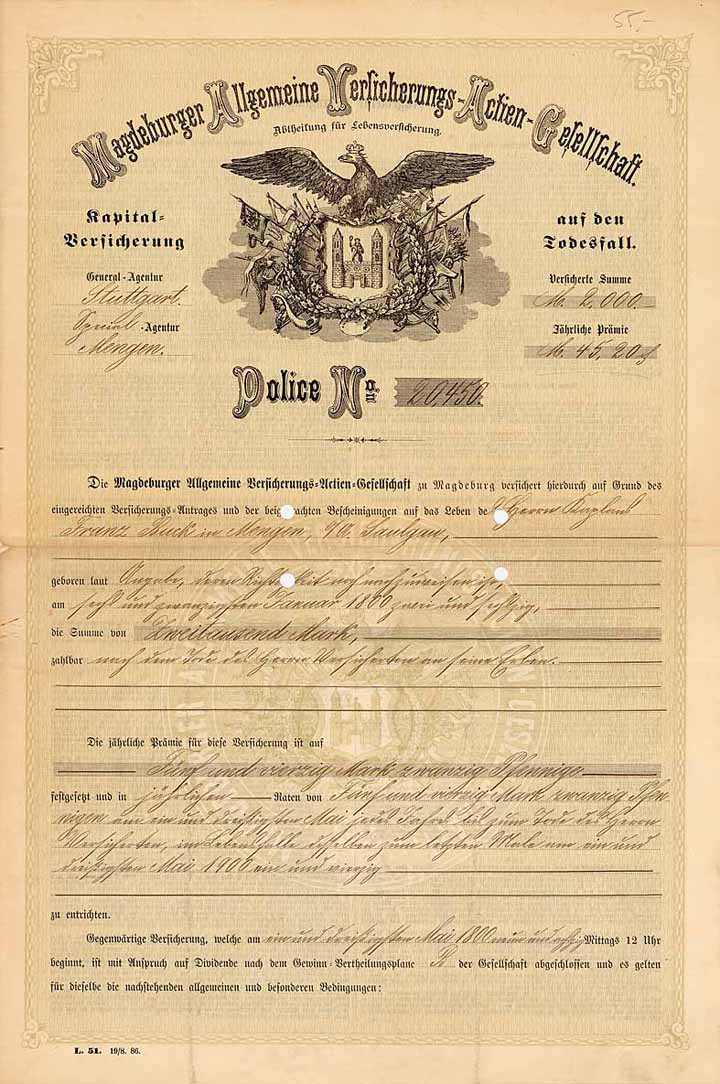 55,-
Magdeburger Allgemeine Versicherungs-Actien-Gesellschaft.
Abtheilung für Lebensversicherung.
Kapital-
Versicherung
auf den
Todesfall.
General-Agentur
Stuttgart.
Special-Agentur
Mengen.
Versicherte Summe
M. 2,000.—
Jährliche Prämie
M. 45,20 ₰
Police No. 20,450.
Die Magdeburger Allgemeine Versicherungs-Actien-Gesellschaft zu Magdeburg versichert hierdurch auf Grund des
eingereichten Versicherungs-Antrages und der beigebrachten Bescheinigungen auf das Leben des Herrn Kaplans
Franz Buck in Mengen, O/A. Saulgau,
geboren laut Angabe, deren Richtigkeit noch nachzuweisen ist,
am sechs und zwanzigsten Januar 1800 zwei und sechzig,
die Summe von Zweitausend Mark,
zahlbar nach dem Tode des Herrn Versicherten an seine Erben.
Die jährliche Prämie für diese Versicherung ist auf
Fünf und vierzig Mark zwanzig Pfennige
festgesetzt und in jährlichen Raten von Fünf und vierzig Mark zwanzig Pfen-
nigen am ein und dreißigsten Mai jedes Jahres bis zum Tode des Herrn
Versicherten, im Lebensfalle desselben zum letzten Male am ein und
dreißigsten Mai 1900 ein und vierzig
zu entrichten.
Gegenwärtige Versicherung, welche am ein und dreißigsten Mai 1800 neun und achtzig Mittags 12 Uhr
beginnt, ist mit Anspruch auf Dividende nach dem Gewinn-Vertheilungsplane B der Gesellschaft abgeschlossen und es gelten
für dieselbe die nachstehenden allgemeinen und besonderen Bedingungen:
L. 51. 19/8. 86.